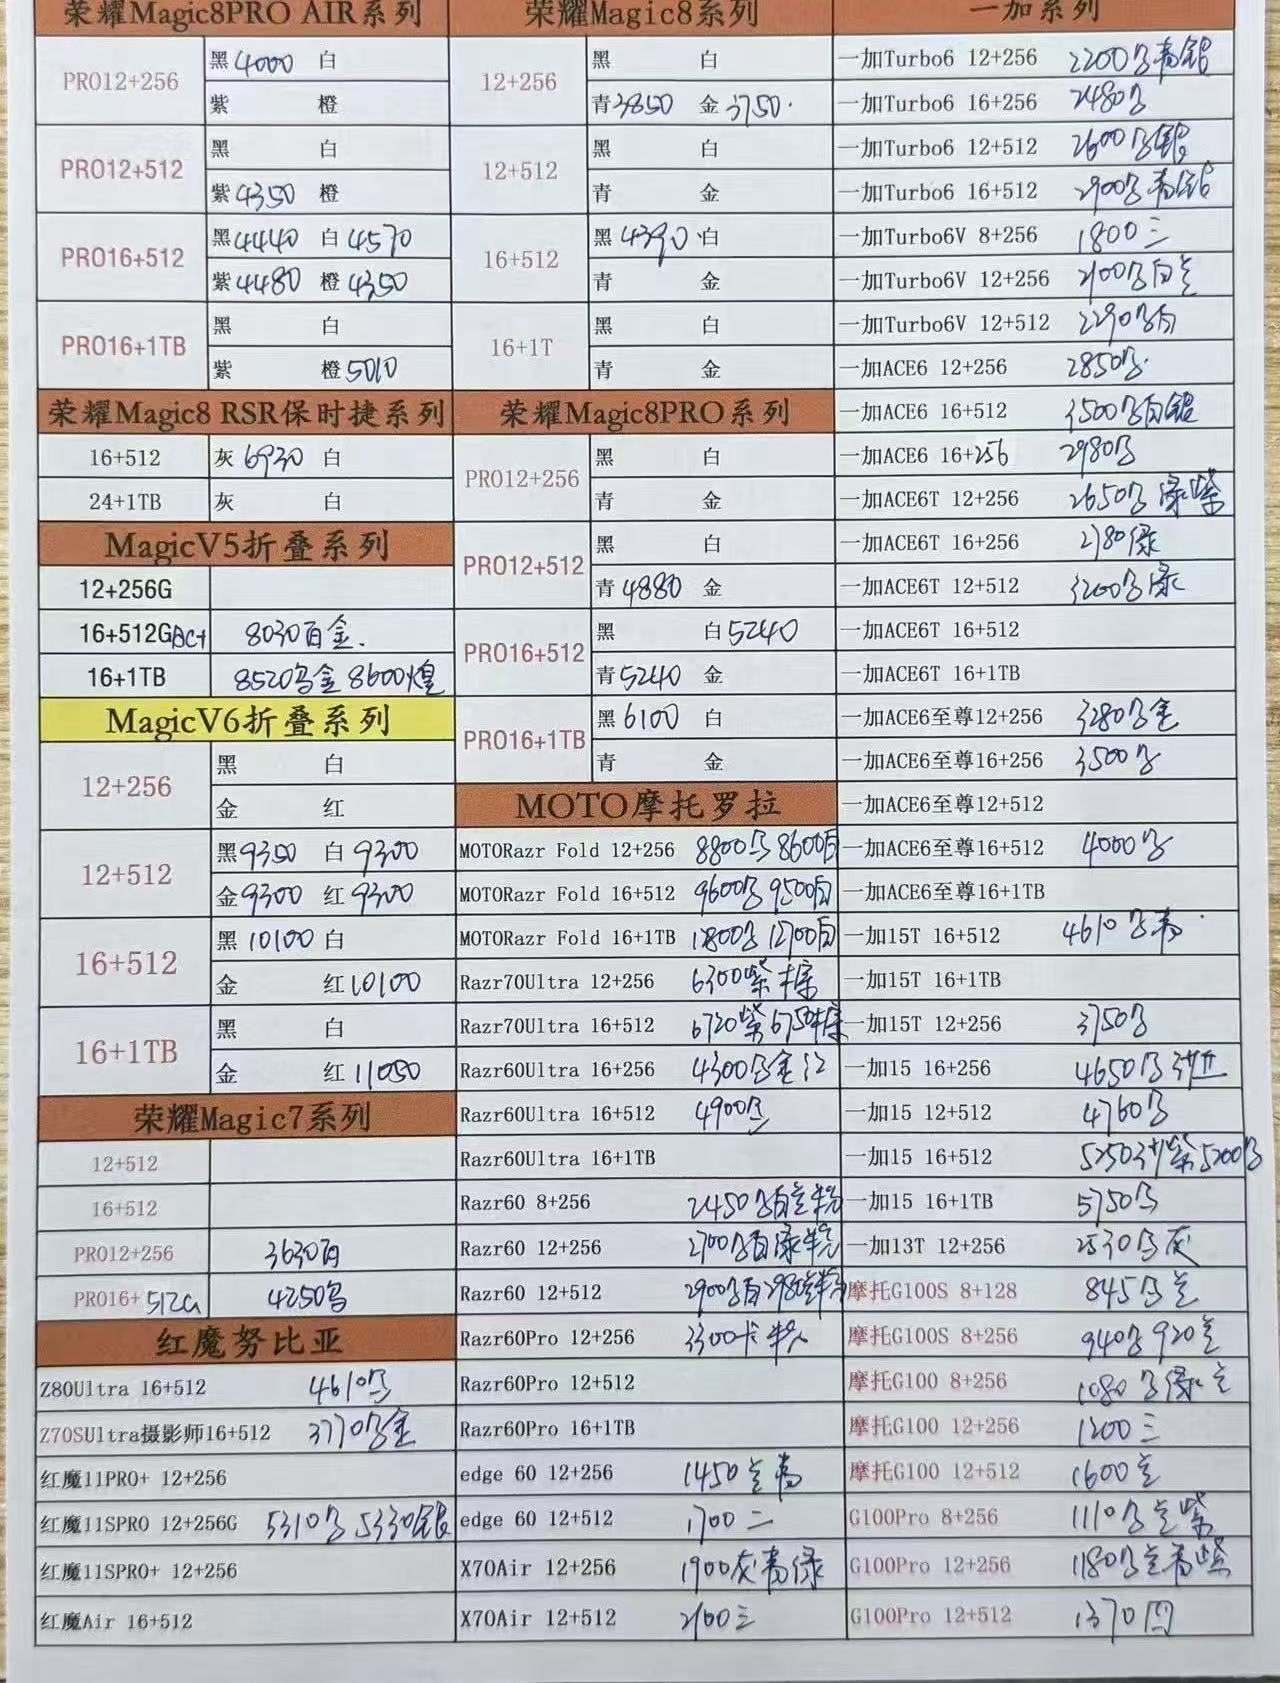 荣耀Magic8PRO AIR系列
PRO12+256 黑4000 白
紫 橙
PRO12+512 黑 白
紫4350 橙
PRO16+512 黑4440 白4570
紫4480 橙4350
PRO16+1TB 黑 白
紫 橙5010
荣耀Magic8 RSR保时捷系列
16+512 灰6930 白
24+1TB 灰 白
MagicV5折叠系列
12+256G
16+512G 8030百金.
16+1TB 8520乌金 8600煌
MagicV6折叠系列
12+256 黑 白
金 红
12+512 黑9350 白9300
金9300 红9300
16+512 黑10100 白
金 红10100
16+1TB 黑 白
金 红11050
荣耀Magic7系列
12+512
16+512
PRO12+256 3630百
PRO16+512G 4250乌
红魔努比亚
Z80Ultra 16+512 4610
Z70SUltra摄影师16+512 3770
红魔11PRO+ 12+256
红魔11SPRO 12+256G 5310 5330银
红魔11SPRO+ 12+256
红魔Air 16+512
荣耀Magic8系列
12+256 黑 白
青3850 金3750.
12+512 黑 白
青 金
16+512 黑4390 白
青 金
16+1T 黑 白
青 金
荣耀Magic8PRO系列
PRO12+256 黑 白
青 金
PRO12+512 黑 白
青4880 金
PRO16+512 黑 白5240
青5240 金
PRO16+1TB 黑6100 白
青 金
MOTO摩托罗拉
MOTORazr Fold 12+256 8800乌 8600白
MOTORazr Fold 16+512 9600 9500白
MOTORazr Fold 16+1TB 12700白
Razr70Ultra 12+256 6300紫
Razr70Ultra 16+512 6720紫 6750
Razr60Ultra 16+256 4300
Razr60Ultra 16+512 4900
Razr60Ultra 16+1TB
Razr60 8+256 2450
Razr60 12+256 2700
Razr60 12+512 2900
Razr60Pro 12+256 3300卡
Razr60Pro 12+512
Razr60Pro 16+1TB
edge 60 12+256 1450
edge 60 12+512 1700二
X70Air 12+256 1900灰青绿
X70Air 12+512 2100三
一加系列
一加Turbo6 12+256 2200
一加Turbo6 16+256 2480
一加Turbo6 12+512 2600
一加Turbo6 16+512 2900
一加Turbo6V 8+256 1800三
一加Turbo6V 12+256 2100
一加Turbo6V 12+512 2290
一加ACE6 12+256 2850
一加ACE6 16+512 3500
一加ACE6 16+256 2980
一加ACE6T 12+256 2650
一加ACE6T 16+256 2780绿
一加ACE6T 12+512 3200
一加ACE6T 16+512
一加ACE6T 16+1TB
一加ACE6至尊12+256 3280
一加ACE6至尊16+256 3500
一加ACE6至尊12+512
一加ACE6至尊16+512 4000
一加ACE6至尊16+1TB
一加15T 16+512 4610
一加15T 16+1TB
一加15T 12+256 3750
一加15 16+256 4650
一加15 12+512 4760
一加15 16+512 5250 5200
一加15 16+1TB 5750
一加13T 12+256 2530
摩托G100S 8+128 845
摩托G100S 8+256 940 920
摩托G100 8+256 1080
摩托G100 12+256 1200三
摩托G100 12+512 1600
G100Pro 8+256 1110
G100Pro 12+256 1180
G100Pro 12+512 1370四